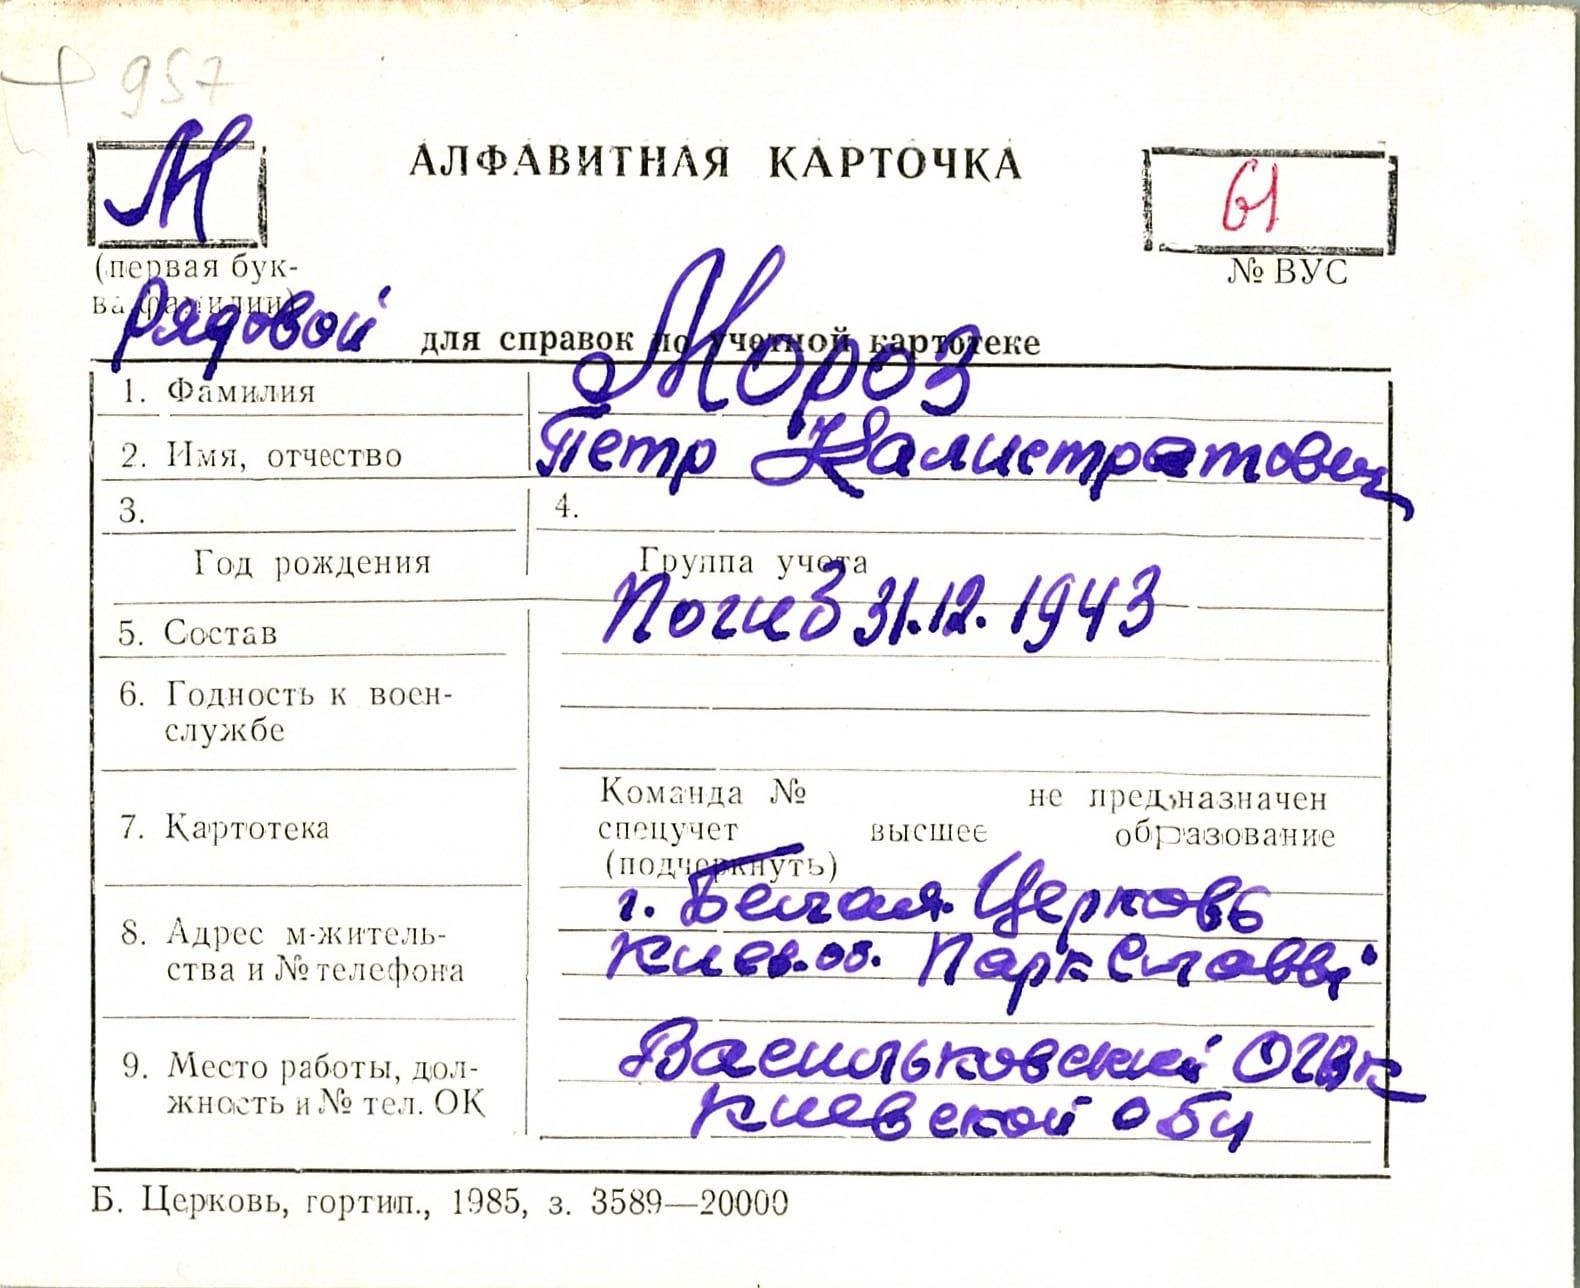 957
М
АЛФАВИТНАЯ КАРТОЧКА
61
(первая бук-
ва фамилии)
№ ВУС
Рядовой
для справок по учетной картотеке
1. Фамилия
Мороз
2. Имя, отчество
Петр Калистратович
3.
4.
Год рождения
Группа учета
Погиб 31.12.1943
5. Состав
6. Годность к воен-
службе
7. Картотека
Команда № не предназначен
спецучет высшее образование
(подчеркнуть)
8. Адрес м-житель-
ства и № телефона
г. Белая Церковь
Киев. об. Парк Славы
9. Место работы, дол-
жность и № тел. ОК
Васильковский ОГВК
Киевской обл
Б. Церковь, гортип., 1985, з. 3589—20000